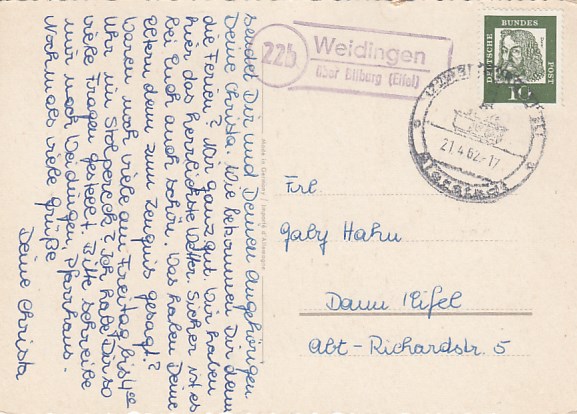 sendet Dir und Deinen Angehörigen
Deine Christa. Wie bekommen Dir denn
die Ferien? Mir ganz gut. Wir haben
hier das herrlichste Wetter. Sicher ist es
bei Euch auch schön. Was haben Deine
Eltern denn zum Zeugnis gesagt?
Waren noch viele am Freitag bis 4
Uhr in Stolpereck? Ich habe Dir so
viele Fragen gestellt. Bitte schreibe
mir nach Weidingen, Pfarrhaus.
Nochmals viele Grüße
Deine Christa
Made in Germany / Importé d'Allemagne
22b
Weidingen
über Bitburg (Eifel)
DEUTSCHE BUNDES POST
10
21.4.62-17
Frl.
Gaby Hahn
Daun /Eifel
Abt-Richardstr. 5